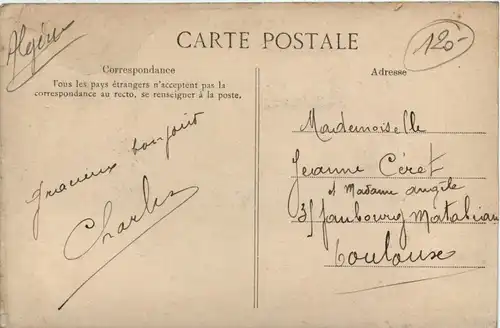 Algérie
CARTE POSTALE
120-
Correspondance
Tous les pays étrangers n'acceptent pas la
correspondance au recto, se renseigner à la poste.
Gracieux bonjour
Charles
Adresse
Mademoiselle
Jeanne Céret
et Madame Angèle
31 faubourg Matabiau
Toulouse